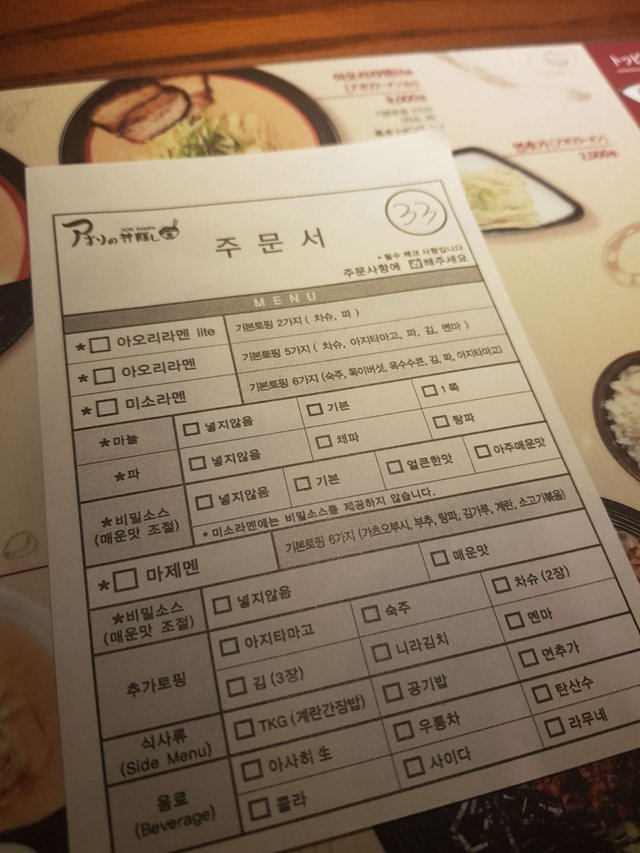 アオリの神隠し
AORI RAMEN
33
주문서
* 필수 체크 사항입니다
주문사항에 ☑해주세요
MENU
* □ 아오리라멘 lite 기본토핑 2가지 ( 차슈, 파 )
* □ 아오리라멘 기본토핑 5가지 ( 차슈, 아지타마고, 파, 김, 멘마 )
* □ 미소라멘 기본토핑 6가지 (숙주, 목이버섯, 옥수수콘, 김, 파, 아지타마고)
* 마늘 □ 넣지않음 □ 기본 □ 1쪽
* 파 □ 넣지않음 □ 채파 □ 탕파
* 비밀소스 □ 넣지않음 □ 기본 □ 얼큰한맛 □ 아주매운맛
(매운맛 조절)
* 미소라멘에는 비밀소스를 제공하지 않습니다.
* □ 마제멘 기본토핑 6가지 (가츠오부시, 부추, 탕파, 김가루, 계란, 소고기볶음)
* 비밀소스 □ 넣지않음 □ 매운맛
(매운맛 조절)
추가토핑 □ 아지타마고 □ 숙주 □ 차슈 (2장)
□ 김 (3장) □ 니라김치 □ 멘마
식사류 □ TKG (계란간장밥) □ 공기밥 □ 면추가
(Side Menu)
음료 □ 아사히 生 □ 우롱차 □ 탄산수
(Beverage) □ 콜라 □ 사이다 □ 라무네
아오리라멘lite
9,000원
면추가
2,000원
トッピ